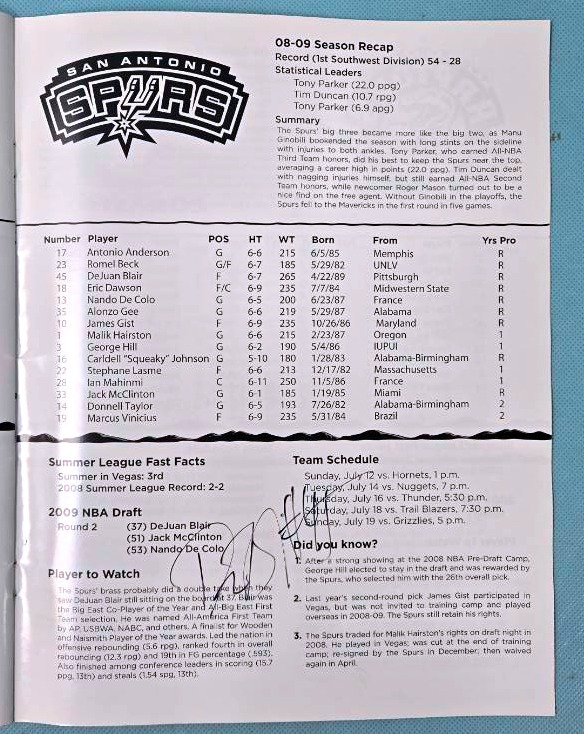 SAN ANTONIO
SPURS
08-09 Season Recap
Record (1st Southwest Division) 54 - 28
Statistical Leaders
Tony Parker (22.0 ppg)
Tim Duncan (10.7 rpg)
Tony Parker (6.9 apg)
Summary
The Spurs' big three became more like the big two, as Manu
Ginobili bookended the season with long stints on the sideline
with injuries to both ankles. Tony Parker, who earned All-NBA
Third Team honors, did his best to keep the Spurs near the top,
averaging a career high in points (22.0 ppg). Tim Duncan dealt
with nagging injuries himself, but still earned All-NBA Second
Team honors, while newcomer Roger Mason turned out to be a
nice find on the free agent. Without Ginobili in the playoffs, the
Spurs fell to the Mavericks in the first round in five games.
Number Player POS HT WT Born From Yrs Pro
17 Antonio Anderson G 6-6 215 6/5/85 Memphis R
23 Romel Beck G/F 6-7 185 5/29/82 UNLV R
45 DeJuan Blair F 6-7 265 4/22/89 Pittsburgh R
18 Eric Dawson F/C 6-9 235 7/7/84 Midwestern State R
13 Nando De Colo G 6-5 200 6/23/87 France R
35 Alonzo Gee G 6-6 219 5/29/87 Alabama R
10 James Gist F 6-9 235 10/26/86 Maryland R
1 Malik Hairston G 6-6 215 2/23/87 Oregon 1
3 George Hill G 6-2 190 5/4/86 IUPUI 1
16 Carldell "Squeaky" Johnson G 5-10 180 1/28/83 Alabama-Birmingham R
22 Stephane Lasme F 6-6 213 12/17/82 Massachusetts 1
28 Ian Mahinmi C 6-11 250 11/5/86 France 1
33 Jack McClinton G 6-1 185 1/19/85 Miami R
14 Donnell Taylor G 6-5 193 7/26/82 Alabama-Birmingham 2
19 Marcus Vinicius F 6-9 235 5/31/84 Brazil 2
Summer League Fast Facts
Summer in Vegas: 3rd
2008 Summer League Record: 2-2
2009 NBA Draft
Round 2 (37) DeJuan Blair
(51) Jack McClinton
(53) Nando De Colo
Player to Watch
The Spurs' brass probably did a double take when they
saw DeJuan Blair still sitting on the board at 37. Blair was
the Big East Co-Player of the Year and All-Big East First
Team selection. He was named All-America First Team
by AP, USBWA, NABC, and others. A finalist for Wooden
and Naismith Player of the Year awards. Led the nation in
offensive rebounding (5.6 rpg), ranked fourth in overall
rebounding (12.3 rpg) and 19th in FG percentage (.593).
Also finished among conference leaders in scoring (15.7
ppg, 13th) and steals (1.54 spg, 13th).
Team Schedule
Sunday, July 12 vs. Hornets, 1 p.m.
Tuesday, July 14 vs. Nuggets, 7 p.m.
Thursday, July 16 vs. Thunder, 5:30 p.m.
Saturday, July 18 vs. Trail Blazers, 7:30 p.m.
Sunday, July 19 vs. Grizzlies, 5 p.m.
Did you know?
1. After a strong showing at the 2008 NBA Pre-Draft Camp,
George Hill elected to stay in the draft and was rewarded by
the Spurs, who selected him with the 26th overall pick.
2. Last year's second-round pick James Gist participated in
Vegas, but was not invited to training camp and played
overseas in 2008-09. The Spurs still retain his rights.
3. The Spurs traded for Malik Hairston's rights on draft night in
2008. He played in Vegas; was cut at the end of training
camp; re-signed by the Spurs in December; then waived
again in April.